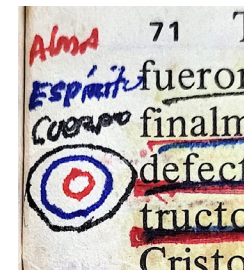 71 T
Alma
Espíritu fueron
Cuerpo finalm
defect
tructo
Cristo